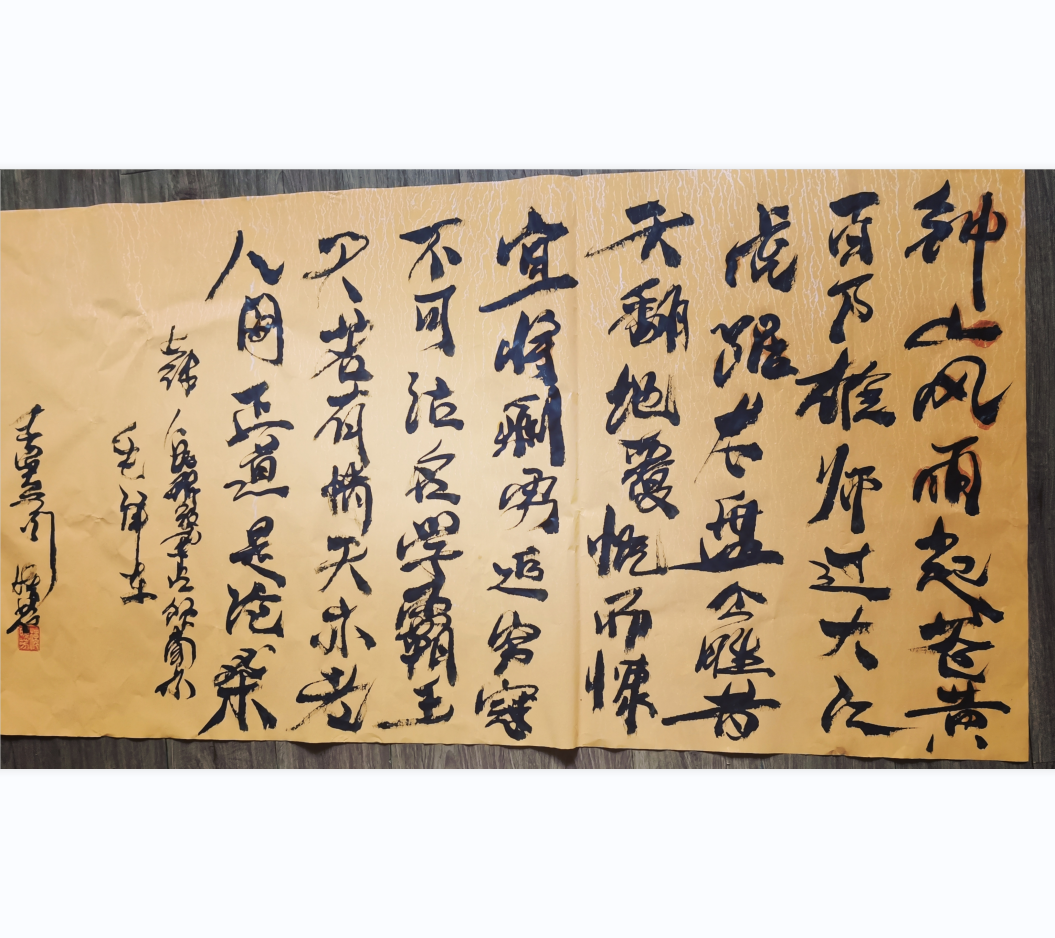 钟山风雨起苍黄
百万雄师过大江
虎踞龙盘今胜昔
天翻地覆慨而慷
宜将剩勇追穷寇
不可沽名学霸王
天若有情天亦老
人间正道是沧桑
七律 人民解放军占领南京
毛泽东